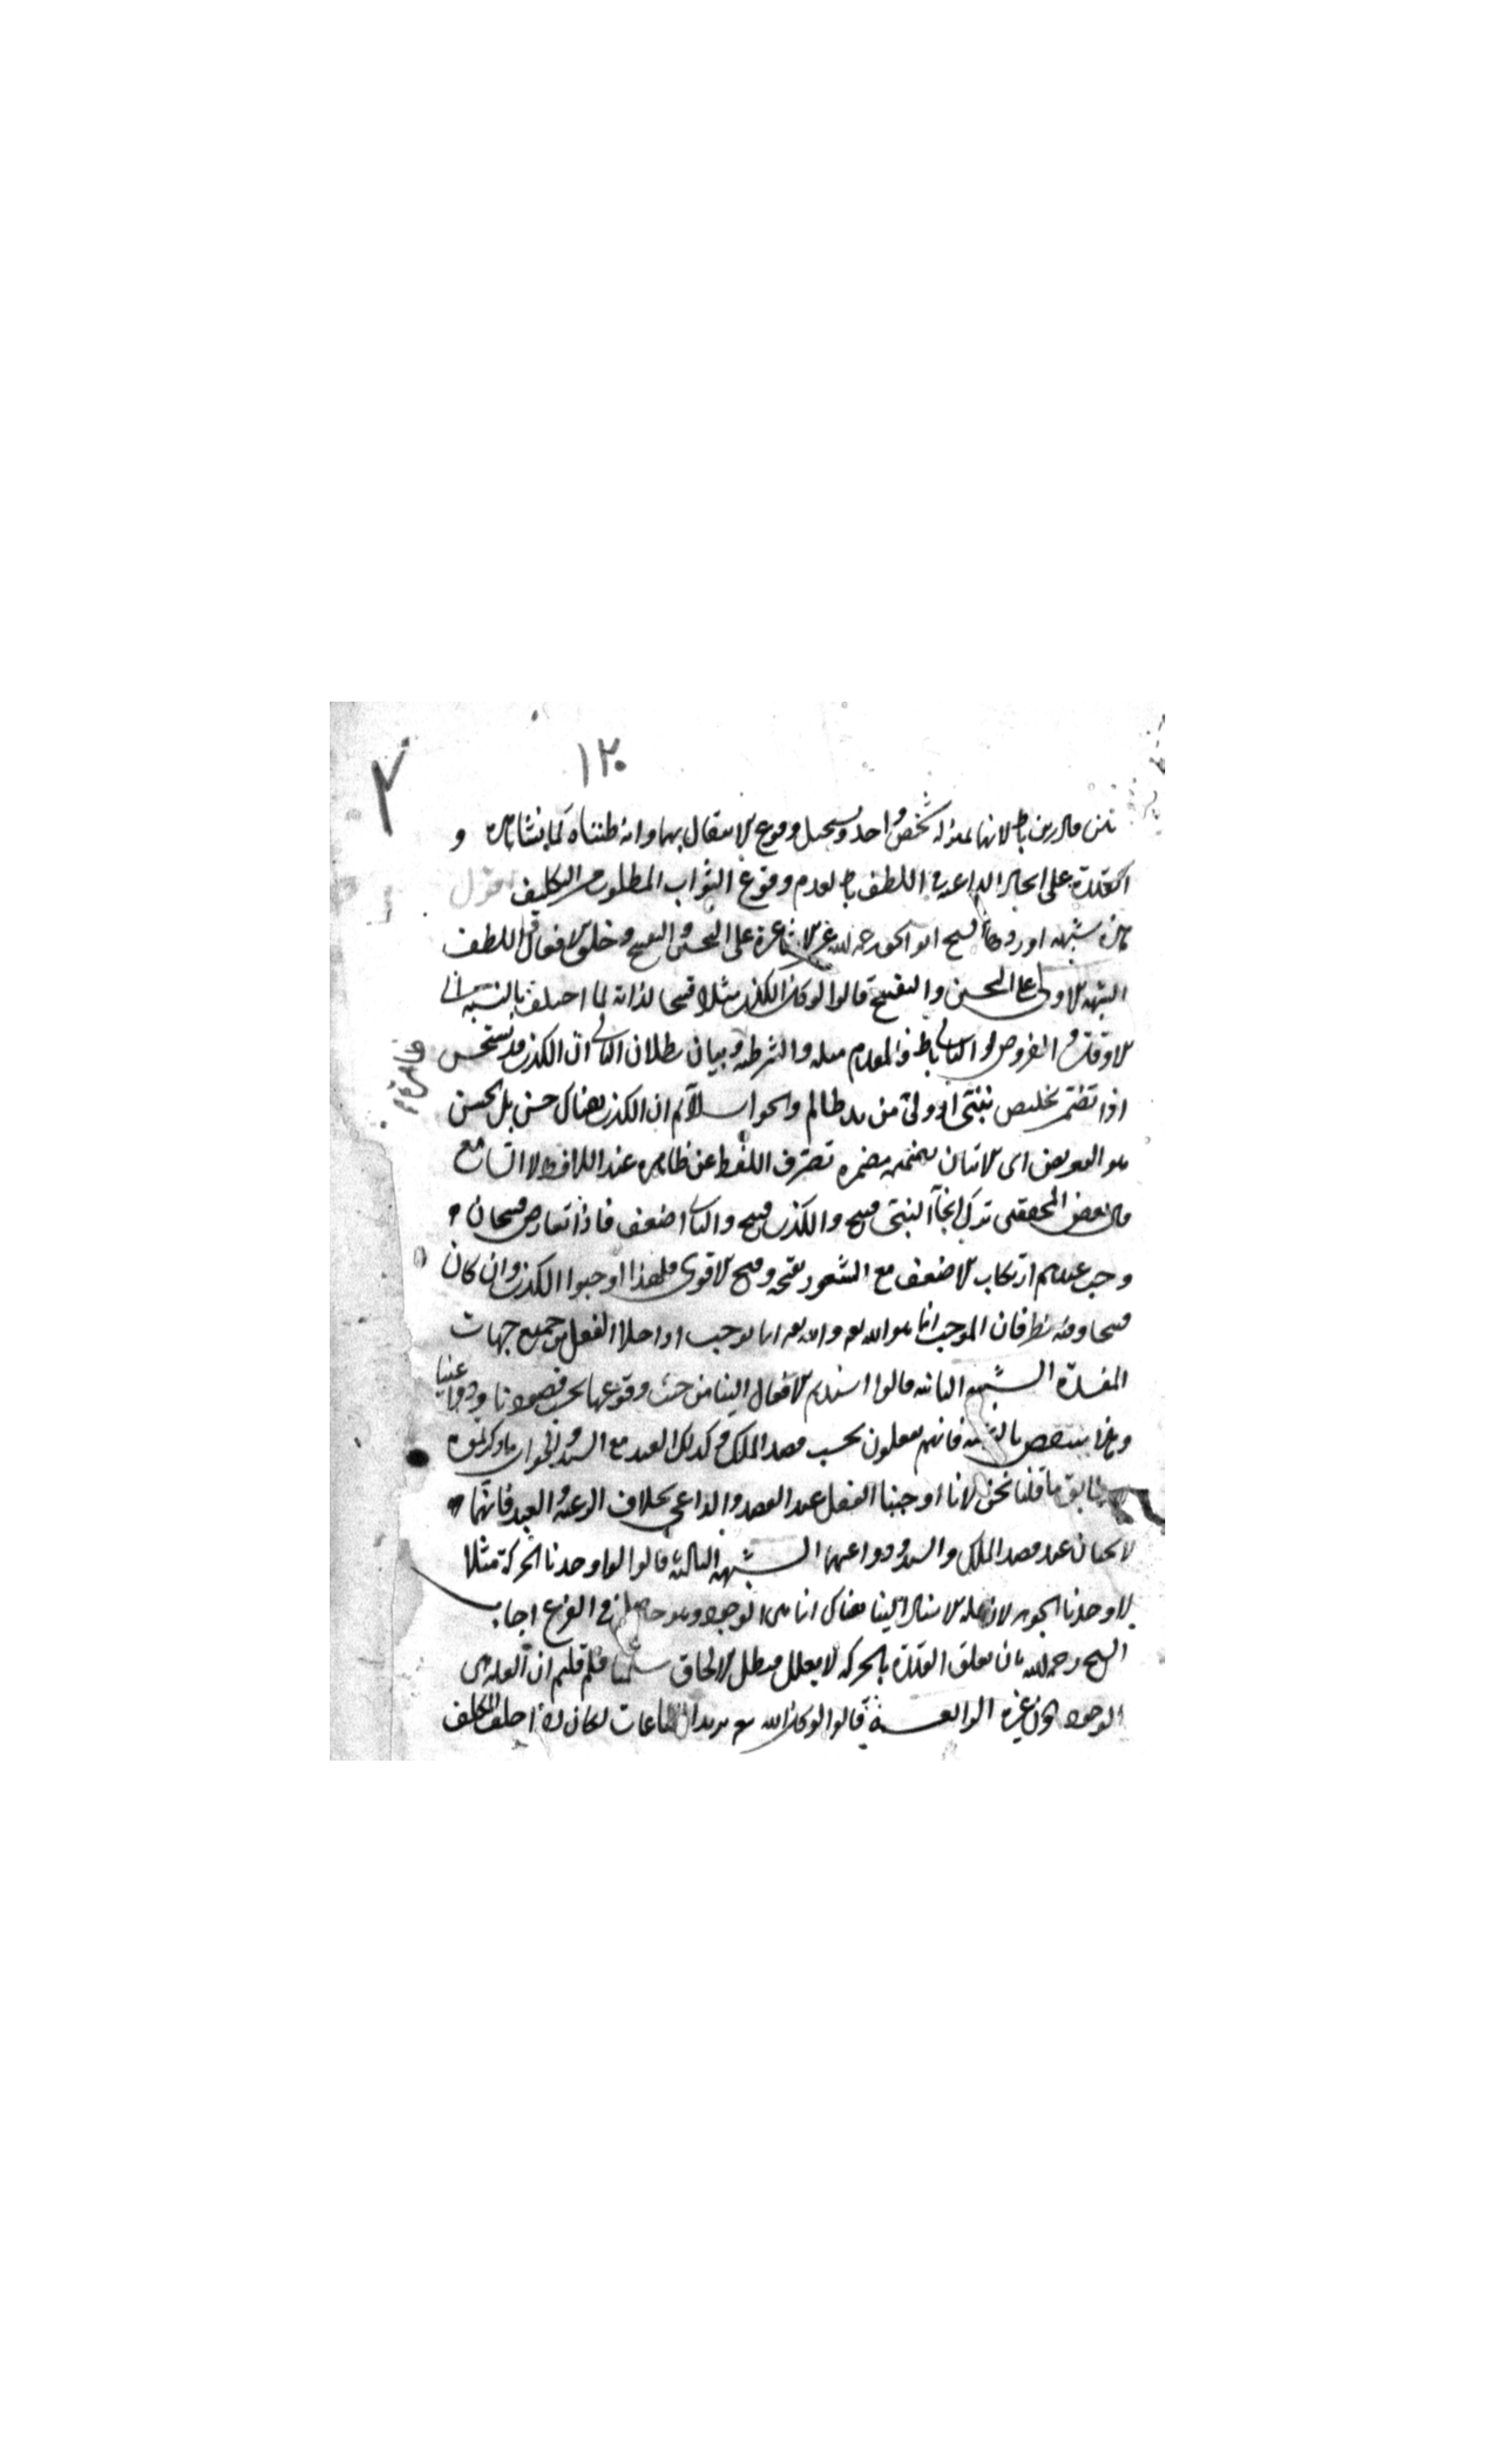 ١٢٠
بين قادرين باطل لانها بمنزلة شخص واحد ويستحيل وقوع الانتقال بها وان ظنناه كما نشاهده و
القدرة على ايجاد الداعية في اللطف باطل لعدم وقوع الثواب المطلوب من التكليف اقول
هذه شبهة اوردها الشيخ ابو اسحق رحمه الله عن الاشاعرة على الحسن والقبيح وخلق الافعال واللطف
الشبهة الاولى على الحسن والقبيح قالوا لو كان الكذب مثلا قبيحا لذاته لما اختلف بالنسبة الى
الاوقات والفروض والتالي باطل فالمقدم مثله والشرطية وبيان بطلان التالي ان الكذب قد يستحسن
اذا تضمن تخليص نبي او ولي من يد ظالم والجواب لا نسلم ان الكذب هناك حسن بل الحسن
هو التعريض اي الاتيان بضميمة مضمرة تصرف اللفظ عن ظاهره عند اللافظ لا السامع
قال بعض المحققين ترك انجاء النبي قبيح والكذب قبيح والثاني اضعف فاذا تعارض قبيحان
وجب عندهم ارتكاب الاضعف مع الشعور بقبحه وقبح الاقوى فلهذا اوجبوا الكذب وان كان
قبيحا وفيه نظر فان الموجب انما هو الله تعالى والله تعالى انما يوجب اذا خلا الفعل من جميع جهات
المفسدة الشبهة الثانية قالوا اسندتم الافعال الينا من حيث وقوعها بحسب قصودنا ودواعينا
وهذا ينتقض فانهم يفعلون بحسب قصد الملك وكذلك العبد مع السيد والجواب ما ذكرتموه
ما قلنا نحن لانا اوجبنا الفعل عند القصد والداعي بخلاف الرعية والعبد فانهما
لا يجبان عند قصد الملك والسيد ودواعيهما الشبهة الثالثة قالوا لو اوجدنا الحركة مثلا
لاوجدنا الجوهر لان علة الاسناد الينا هناك انما هي الوجود وهو حاصل في الفرع اجاب
الشيخ رحمه الله بان تعلق القدرة بالحركة لا يعلل فبطل الالحاق سلمنا فلم قلتم ان العلة هي
الوجود دون غيره الرابعة قالوا لو كان الله تعالى مريدا للطاعات لكان اذا حلف المكلف